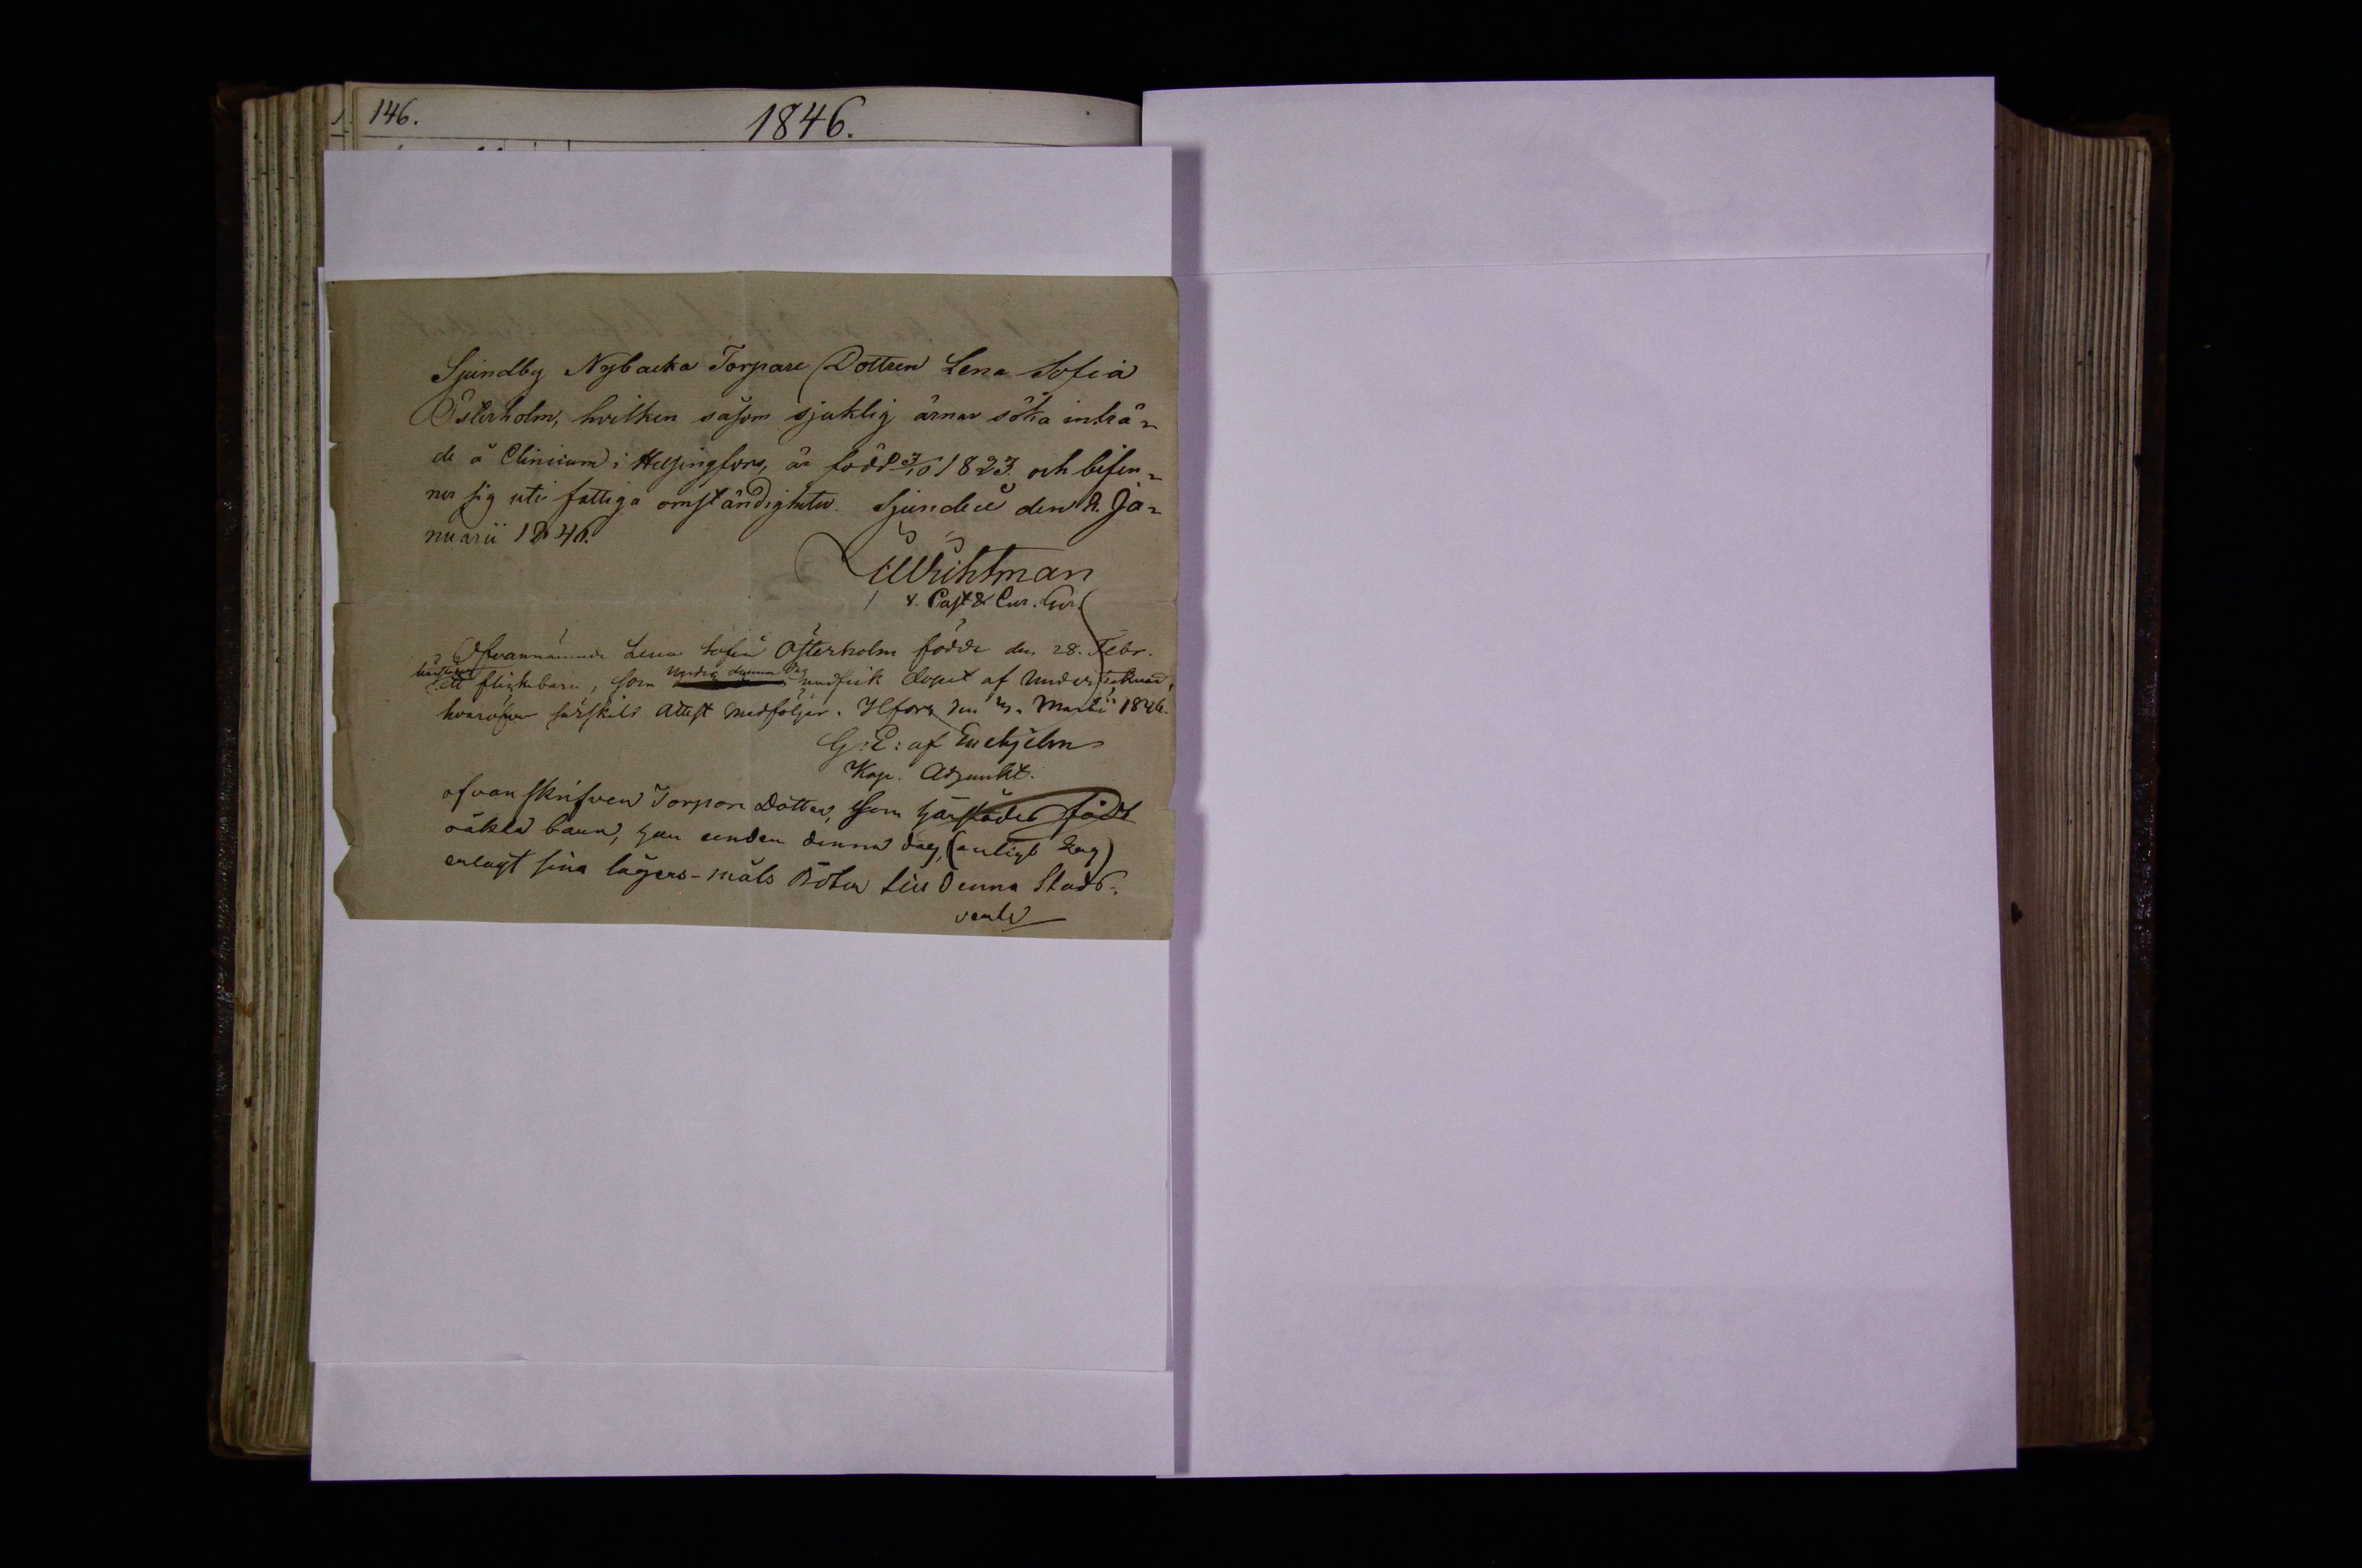 146.
1846.
Sjundby Nybacka Torpare Dottren Lena Sofia
Österholm, hvilken såsom sjuklig ärnar söka inträ-
de å Clinicum i Helsingfors, är född 3/10 1823. och befin-
ner sig uti fattiga omständigheter. Sjundeå den 2. Ja-
nuarii 1846.
v. Past & Cur. Ger.
Ofvannämnde Lena Sofia Österholm födde den 28. Febr.
härstädes
ett flickebarn, som undfick dopet af Undertecknad,
hvaröfver särskild Attest medföljer. Hfors den Martii 1846.
G: E: af Enehjelm
Kap. Adjunkt.
ofvanskrifven Torpare Dotter, som härstädes född
oäkta barn, har denna dag, (enligt Lag)
erlagt sina lägers-måls böter till denna Stads-